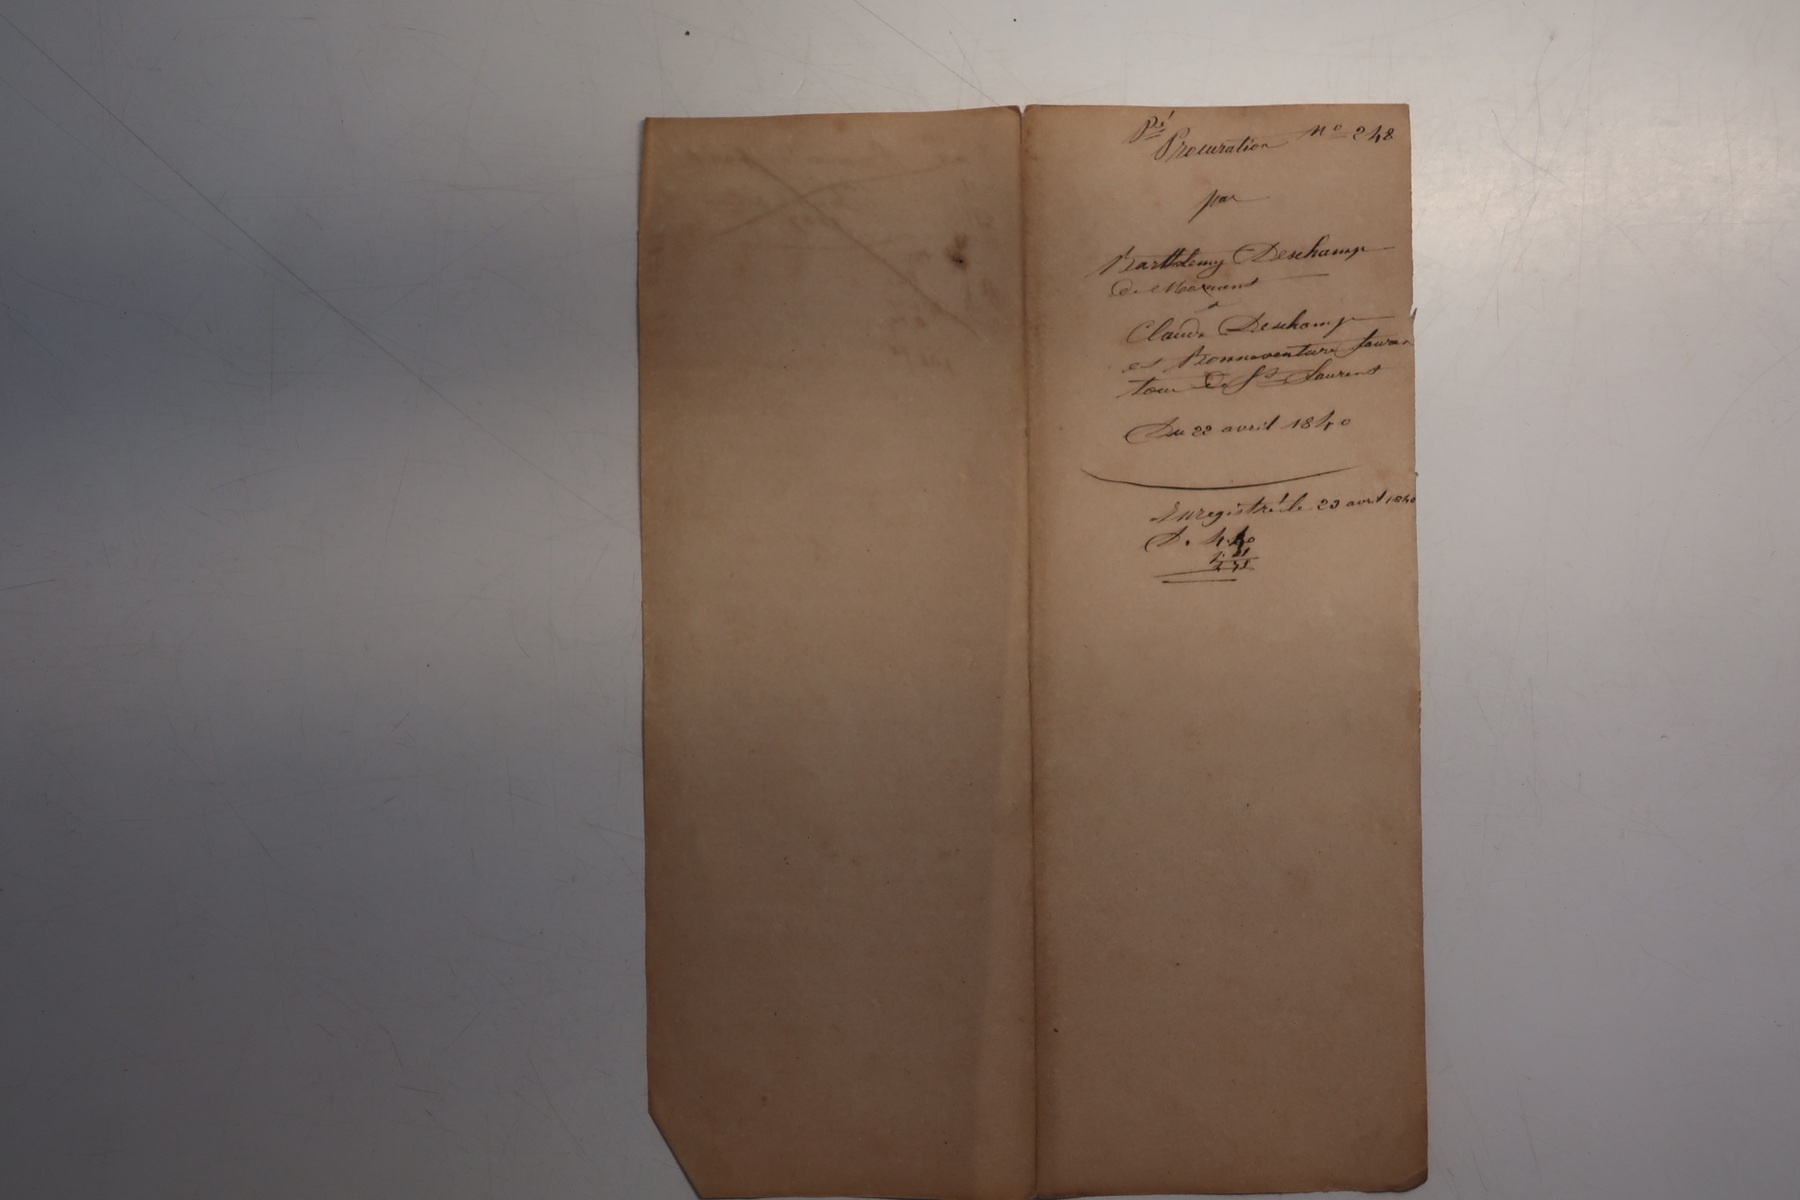 Procuration N° 248
par
Barthélemy Deschamp
de Mormont
à
Claude Deschamp
et Bonnaventure
de St Laurent
Du 22 avril 1840
Enregistré le 23 avril 1840
D.